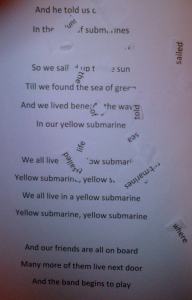 And he told us o
In the           of submarines
So we sail     up t   e sun
Till we found the sea of green
And we lived bene     the wav
In our yellow submarine
We all live          ow submari
Yellow submarin  , yellow s
We all live in a yellow submarine
Yellow submarine, yellow submarine
And our friends are all on board
Many more of them live next door
And the band begins to play
sailed
the
told
sea
life
where